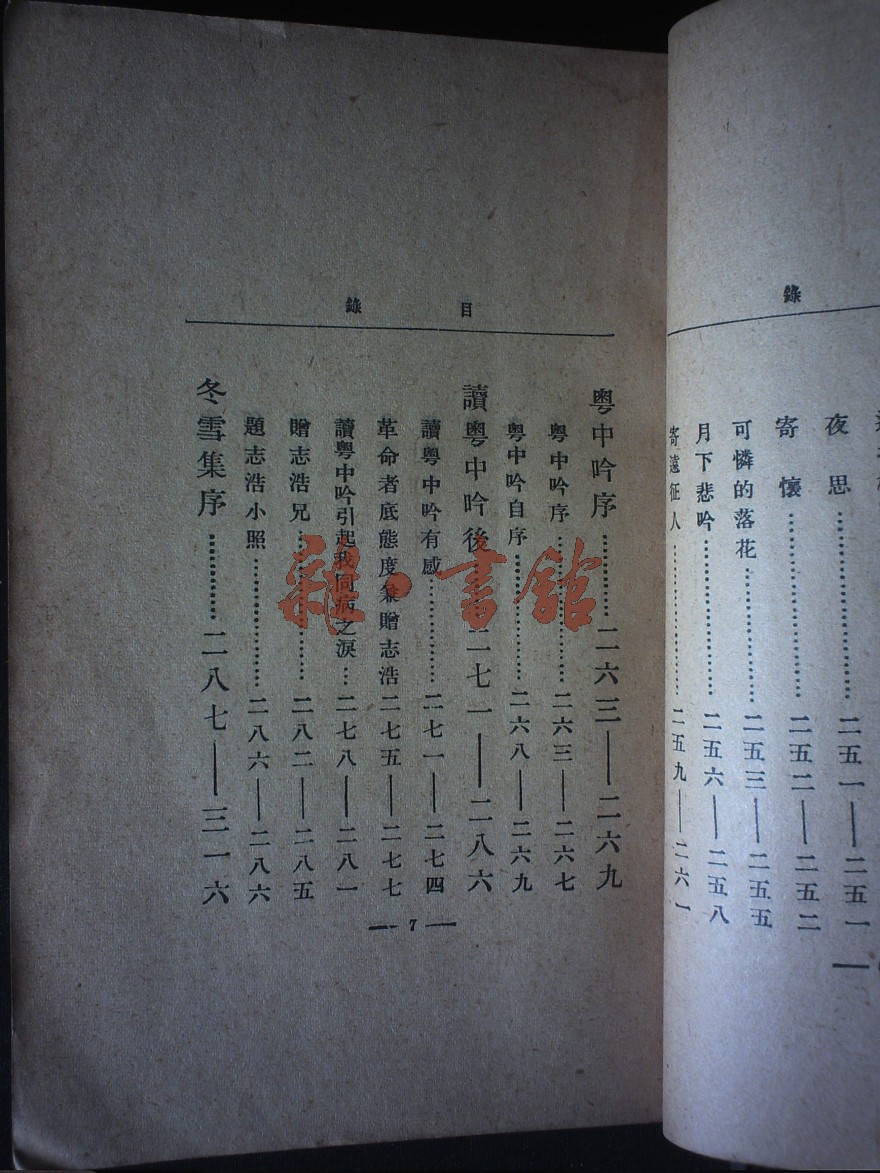 錄
夜思…………二五一——二五一
寄懷…………二五二——二五二
可憐的落花…………二五三——二五五
月下悲吟…………二五六——二五八
寄遠征人…………二五九——二六一
目錄
粵中吟序…………二六三——二六九
粵中吟序…………二六三——二六七
粵中吟自序…………二六八——二六九
讀粵中吟後 二七一——二八六
讀粵中吟有感…………二七一——二七四
革命者底態度兼贈志浩二七五——二七七
讀粵中吟引起我同病之淚…二七八——二八一
贈志浩兄…………二八二——二八五
題志浩小照…………二八六——二八六
冬雪集序…………二八七——三一六
— 7 —
雜·書館